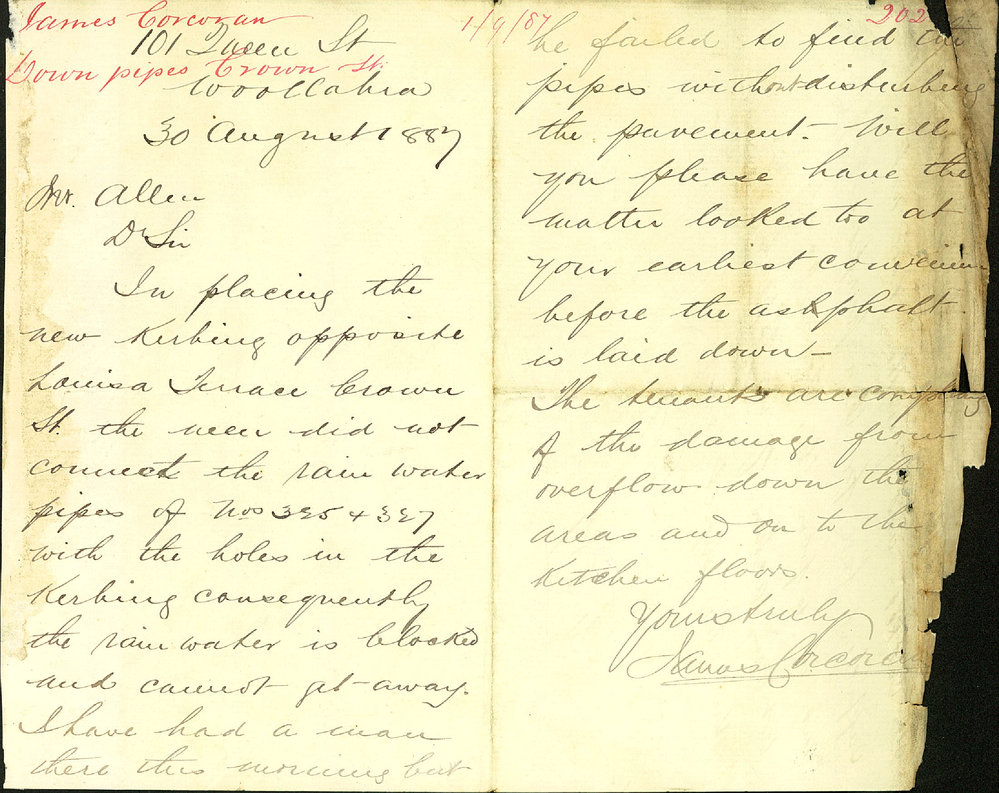 James Corcoran
1/9/87
202
101 Queen St
Down pipes Crown St.
Woollahra
30 August 1887
Mr. Allen
Dr Sir
In placing the
new Kerbing opposite
Louisa Terrace Crown
St. the men did not
connect the rain water
pipes of Nos 395 & 397
with the holes in the
Kerbing consequently
the rain water is blocked
and cannot get away.
I have had a man
there this morning but
he failed to find the
pipes without disturbing
the pavement. Will
you please have the
matter looked too at
your earliest convenien
before the ashphalt
is laid down –
The tenants are complag
of the damage from
overflow down the
areas and on to the
Kitchen floors.
Yours truly
James Corcoran